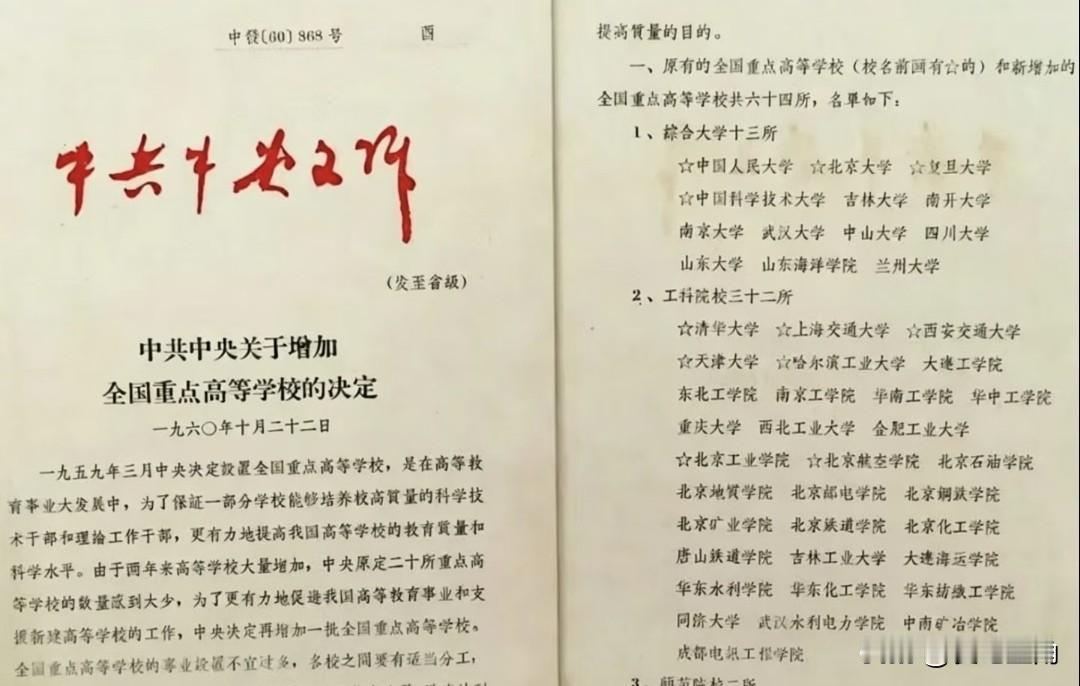 中發〔60〕868号
中共中央文件
(发至省級)
中共中央关于增加
全国重点高等学校的决定
一九六〇年十月二十二日
一九五九年三月中央决定設置全国重点高等学校，是在高等教
育事业大发展中，为了保証一部分学校能够培养校高質量的科学技
术干部和理論工作干部，更有力地提高我国高等学校的教育質量和
科学水平。由于两年来高等学校大量增加，中央原定二十所重点高
等学校的数量感到太少，为了更有力地促进我国高等教育事业和支
援新建高等学校的工作，中央决定再增加一批全国重点高等学校。
全国重点高等学校的专业設置不宜过多，各校之間要有适当分工，
提高質量的目的。
一、原有的全国重点高等学校（校名前画有☆的）和新增加的
全国重点高等学校共六十四所，名單如下：
1、綜合大学十三所
☆中国人民大学 ☆北京大学 ☆复旦大学
☆中国科学技术大学 吉林大学 南开大学
南京大学 武汉大学 中山大学 四川大学
山东大学 山东海洋学院 兰州大学
2、工科院校三十二所
☆清华大学 ☆上海交通大学 ☆西安交通大学
☆天津大学 ☆哈尔濱工业大学 大連工学院
东北工学院 南京工学院 华南工学院 华中工学院
重庆大学 西北工业大学 合肥工业大学
☆北京工业学院 ☆北京航空学院 北京石油学院
北京地質学院 北京邮电学院 北京鋼鉄学院
北京矿业学院 北京鉄道学院 北京化工学院
唐山鉄道学院 吉林工业大学 大連海运学院
华东水利学院 华东化工学院 华东紡織工学院
同济大学 武汉水利电力学院 中南矿冶学院
成都电訊工程学院
3、师范院校二所